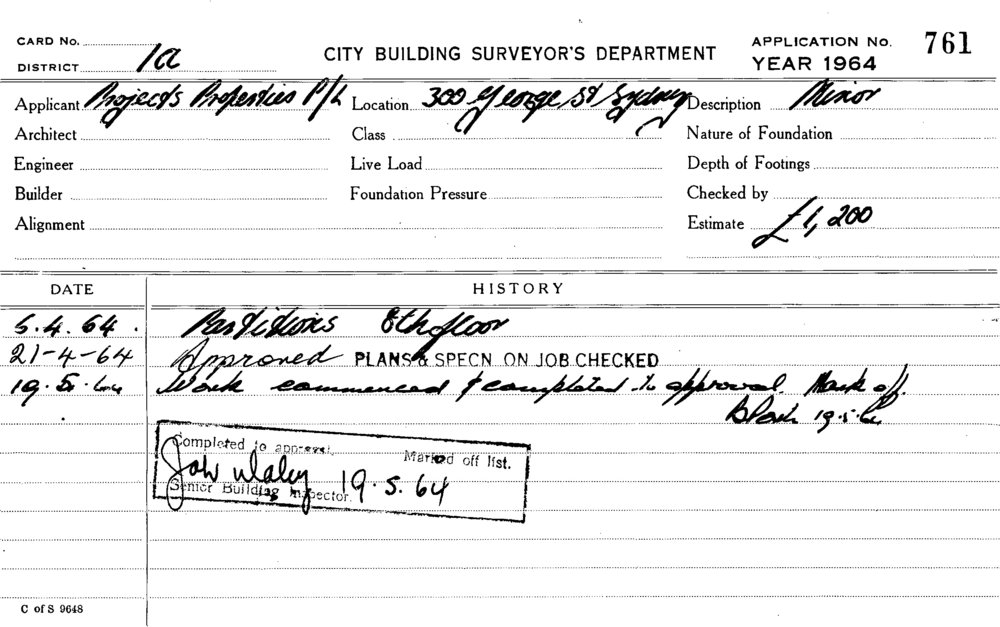 CARD No.
DISTRICT 1a
CITY BUILDING SURVEYOR'S DEPARTMENT
APPLICATION No. 761
YEAR 1964
Applicant Projects Properties P/L Location 300 George St Sydney Description Minor
Architect Class Nature of Foundation
Engineer Live Load Depth of Footings
Builder Foundation Pressure Checked by
Alignment Estimate £1,200
DATE HISTORY
6.4.64. Partitions 8th floor
21-4-64 Approved PLANS & SPECN ON JOB CHECKED
19.5.64 Work commenced & completed to approval. Mark off.
19.5.64
Completed to approval. Marked off list.
19.5.64
Senior Building Inspector.
C of S 9648